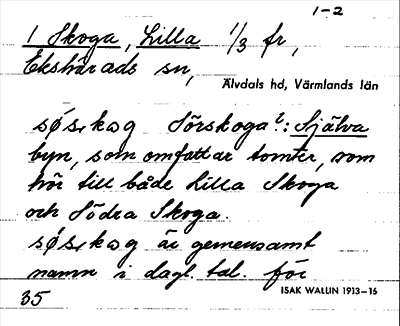 1-2
1 Skoga, Lilla 1/3 fr,
Ekshärads sn,
Älvdals hd, Värmlands län
sø̀s,kog Sörskoga?: Själva
byn, som omfattar tomter, som
hör till både Lilla Skoga
och Södra Skoga.
sø̀s,kog är gemensamt
namn i dagl. tal. för
35
ISAK WALLIN 1913-16